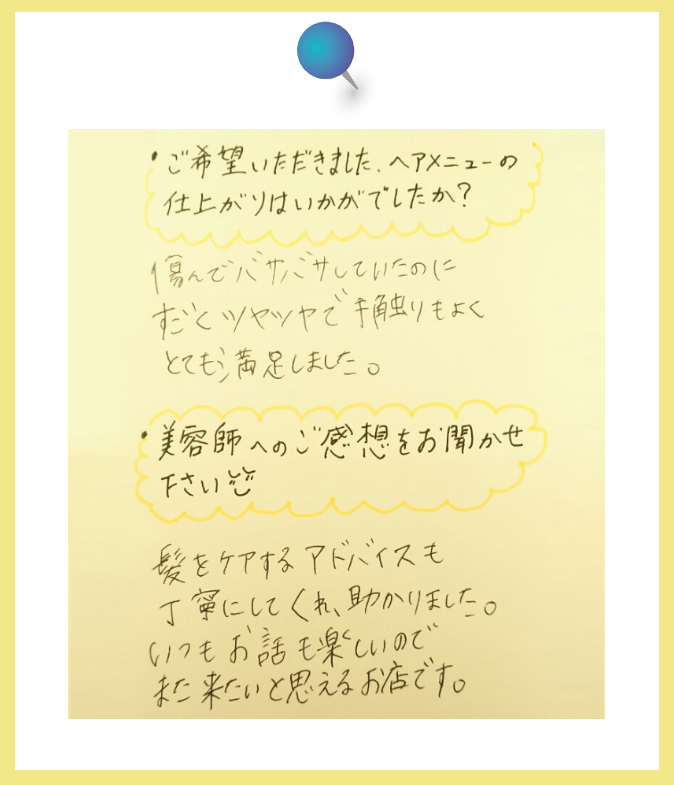 ・ご希望いただきました、ヘアメニューの
仕上がりはいかがでしたか？
傷んでバサバサしていたのに
すごくツヤツヤで手触りもよく
とても満足しました。
・美容師へのご感想をお聞かせ
下さい
髪をケアするアドバイスも
丁寧にしてくれ、助かりました。
いつもお話も楽しいので
また来たいと思えるお店です。